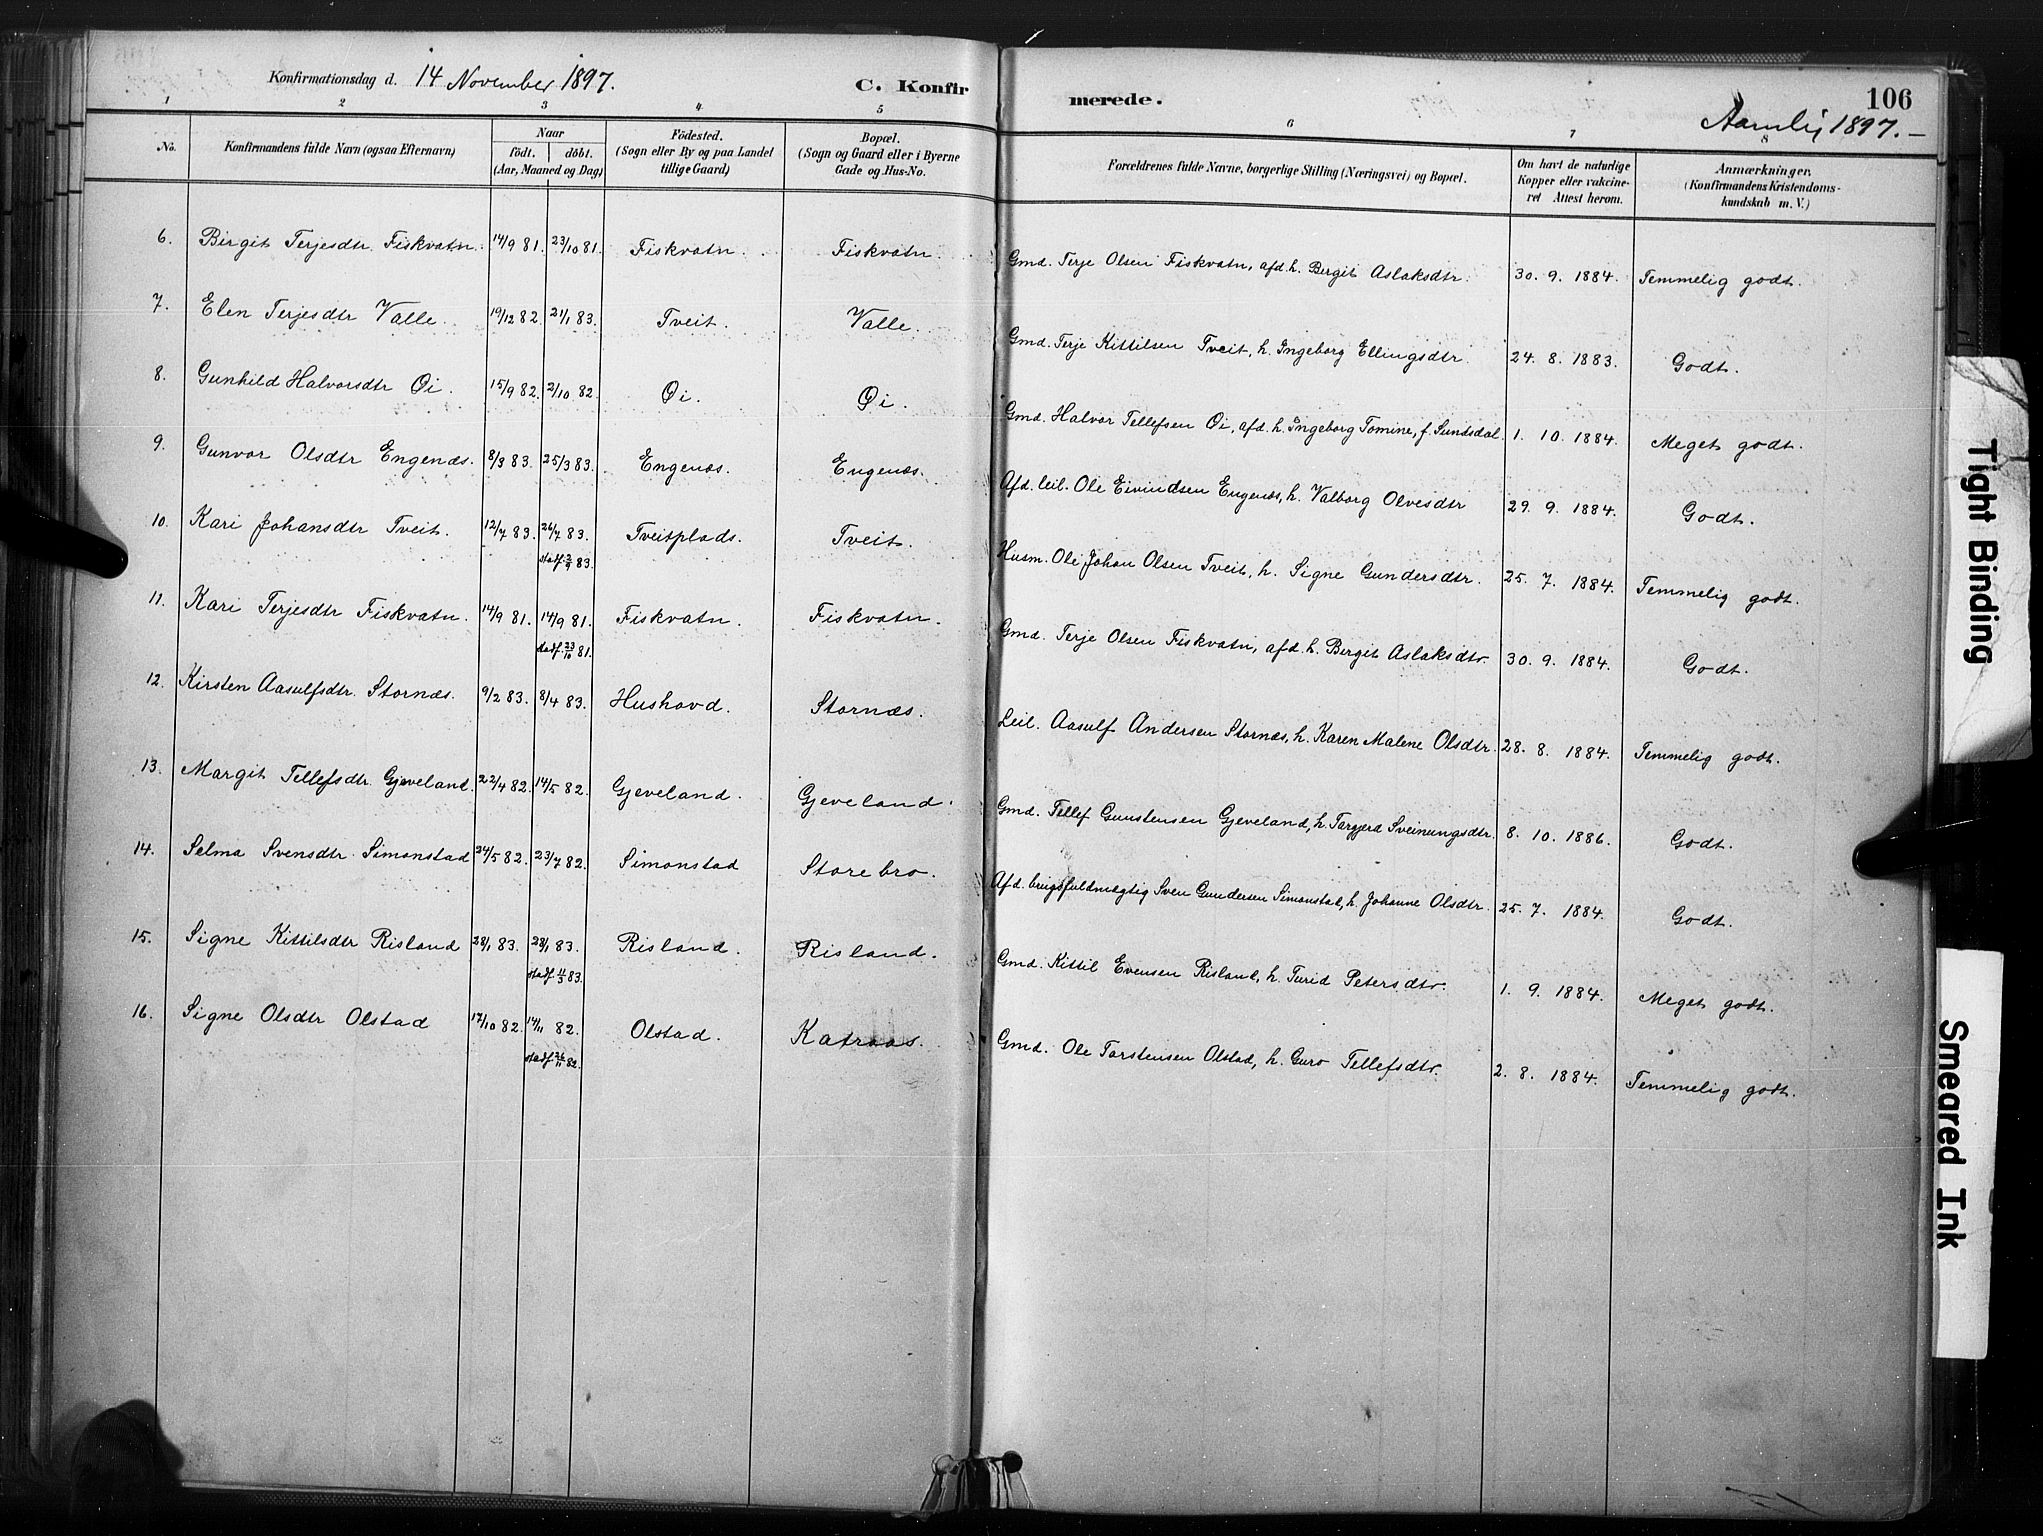 Konfirmationsdag d. 14 November 1897. C. Konfirmerede. 106
Aamlij 1897.—
1 2 3 4 5 6 7 8
No. Konfirmandens fulde Navn (ogsaa Efternavn) Naar födt. döbt. (Aar, Maaned og Dag) Födested. (Sogn eller By og paa Landet tillige Gaard) Bopæl. (Sogn og Gaard eller i Byerne Gade og Hus-No. Forældrenes fulde Navne, borgerlige Stilling (Næringsvei) og Bopæl. Om havt de naturlige Kopper eller vakcineret Attest herom. Anmærkninger. (Konfirmandens Kristendomskundskab m. V.)
6. Birgit Terjesdtr. Fiskvatn. 14/9 81. 23/10 81. Fiskvatn. Fiskvatn. Gmd. Terje Olsen Fiskvatn, afd. h. Bergit Aslaksdtr. 30. 9. 1884. Temmelig godt.
7. Elen Terjesdtr Valle. 19/12 82. 21/1 83. Tveit. Valle. Gmd. Terje Kittilsen Tveit, h. Ingeborg Ellingsdtr. 24. 8. 1883. Godt.
8. Gunhild Halvorsdtr Øi. 15/9 82. 2/10 82. Øi. Øi. Gmd. Halvor Tellefsen Øi, afd. h. Ingeborg Tomine, f. Sundsdal. 1. 10. 1884. Meget godt.
9. Gunvor Olsdtr Engenæs. 8/3 83. 25/3 83. Engenæs. Engenæs. Afd. leil. Ole Eivindsen Engenæs, h. Valborg Olvesdtr 29. 9. 1884. Godt.
10. Kari Johansdtr Tveit. 12/7 83. 26/7 83. Tveitplads. Tveit. Husm. Ole Johan Olsen Tveit, h. Signe Gundersdtr. 25. 7. 1884. Temmelig godt.
stadf. 83.
11. Kari Terjesdtr Fiskvatn. 14/9 81. 14/9 81. Fiskvatn. Fiskvatn. Gmd. Terje Olsen Fiskvatn, afd. h. Bergit Aslaksdtr. 30. 9. 1884. Godt.
stadf. 23/10 81.
12. Kirsten Aasulfsdtr. Stornæs. 9/2 83. 8/4 83. Hushovd. Stornæs. Leil. Aasulf Andersen Stornæs, h. Karen Malene Olsdtr. 28. 8. 1884. Temmelig godt.
13. Margit Tellefsdtr Gjeveland. 22/4 82. 14/5 82. Gjeveland. Gjeveland. Gmd. Tellef Gunstensen Gjeveland, h. Targjerd Sveinungsdtr. 8. 10. 1886. Godt.
14. Selma Svensdtr. Simonstad 24/5 82. 23/7 82. Simonstad Storebro. Afd. brugsfuldmægtig Sven Gundersen Simonstad, h. Johanne Olsdtr. 25. 7. 1884. Godt.
15. Signe Kittilsdtr Risland 28/1 83. 28/1 83. Risland. Risland. Gmd. Kittil Evensen Risland, h. Turid Petersdtr. 1. 9. 1884. Meget godt.
stadf. 11/3 83.
16. Signe Olsdtr Olstad 17/10 82. 14/11 82. Olstad. Katraas. Gmd. Ole Torstensen Olstad, h. Guro Tellefsdtr. 2. 8. 1884. Temmelig godt.
stadf. 26/11 82.
Tight Binding
Smeared Ink